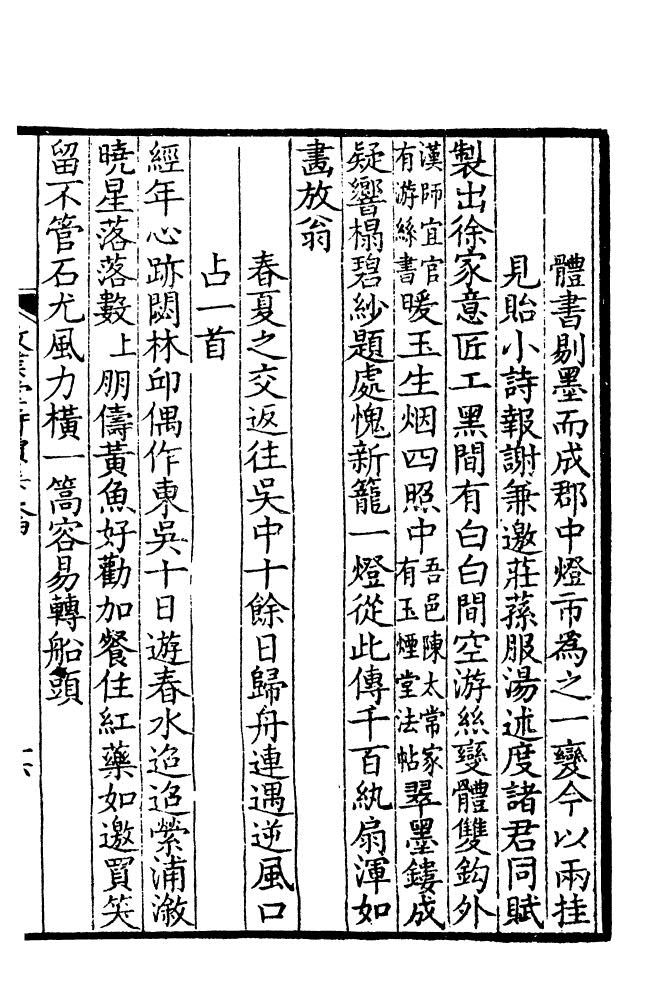 體書剔墨而成郡中燈市為之一變今以兩挂
見貽小詩報謝兼邀莊蓀服湯述度諸君同賦
製出徐家意匠工黑間有白白間空游絲變體雙鈎外
漢師宜官有游絲書暖玉生烟四照中吾邑陳太常家有玉煙堂法帖翠墨鏤成
疑響榻碧紗題處愧新籠一燈從此傳千百紈扇渾如
畵放翁
春夏之交返往吳中十餘日歸舟連遇逆風口
占一首
經年心跡閟林邱偶作東吳十日遊春水迢迢縈浦漵
曉星落落數上朋儔黃魚好勸加餐住紅藥如邀買笑
留不管石尤風力橫一篙容易轉船頭